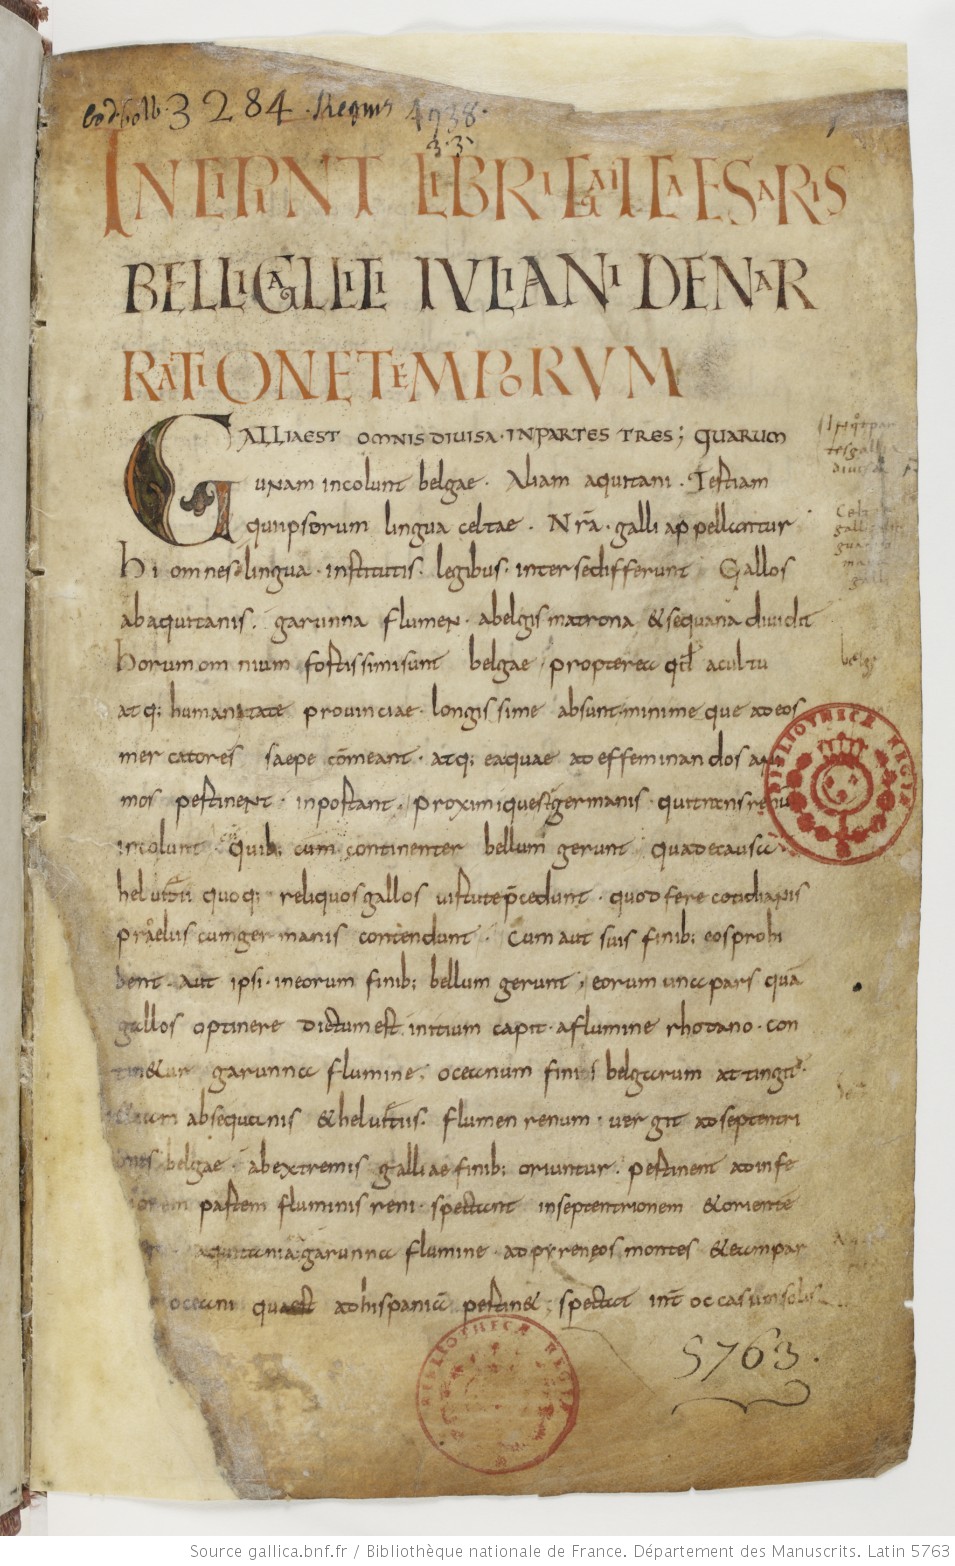 Cod. Colb. 3284. Regius 4938.
3.3.
INCIPIUNT LIBRI GAII CAESARIS
BELLI GALLICI IVLIANI DE NAR
RATIONE TEMPORVM
GALLIA EST OMNIS DIVISA · IN PARTES TRES; QUARUM
UNAM incolunt belgae · Aliam aquitani · Tertiam
qui ipsorum lingua celtae · Nrā · galli appellantur
hi omnes · lingua · institutis · legibus · inter se differunt Gallos
ab aquitanis · garunna flumen · a belgis matrona & sequana diuidit
horum omnium fortissimi sunt belgae propterea qđ a cultu
atq; humanitate prouinciae · longissime absunt · minime que ad eos
mercatores saepe cōmeant · atq; ea quae ad effeminandos ani
mos pertinent · inportant · proximique s̄ germanis · qui trans renū
incolunt · quib; cum continenter bellum gerunt qua de causa
heluetii quoq; reliquos gallos uirtute p̄cedunt · quod fere cotidianis
praeliis cum germanis contendunt · Cum aut suis finib; eos prohi
bent · aut ipsi · in eorum finib; bellum gerunt; eorum una pars quā
gallos optinere dictum est initium capit · a flumine rhodano · con
tin&ur garunna flumine, oceanum finis belgarum attingit
&iam ab sequanis & heluetiis · flumen renum · uergit ad septentri
ones belgae · ab extremis galliae finib; oriuntur · pertinent ad infe
riorem partem fluminis reni · spectant in septentrionem & orientē
aquitania · garunna flumine · ad pyreneos montes & eam par
oceani quae est ad hispaniā pertin&; spectat int̄ occasum solis
5763.
BIBLIOTHECA REGIA
BIBLIOTHECA REGIA
Source gallica.bnf.fr / Bibliothèque nationale de France. Département des Manuscrits. Latin 5763